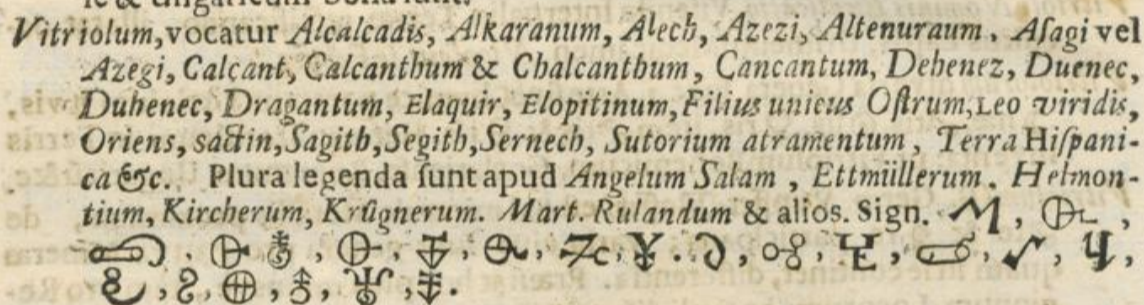 Vitriolum, vocatur Alcalcadis, Alkaranum, Alech, Azezi, Altenuraum, Aſagi vel
Azegi, Calcant, Calcanthum & Chalcanthum, Cancantum, Dehenez, Duenec,
Duhenec, Dragantum, Elaquir, Elopitinum, Filius unicus Oſtrum, Leo viridis,
Oriens, sactin, Sagith, Segith, Sernech, Sutorium atramentum, Terra Hiſpani-
ca &c. Plura legenda ſunt apud Angelum Salam, Ettmüllerum. Helmon-
tium, Kircherum, Krûgnerum. Mart. Rulandum & alios. Sign.